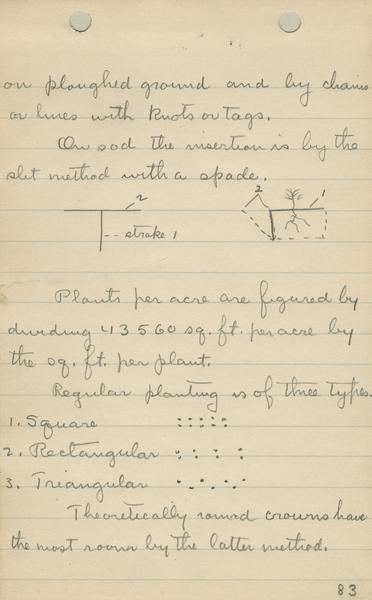 on ploughed ground and by chains
or lines with knots or tags.
On sod the insertion is by the
slit method with a spade.
2
-- stroke 1
2 1
Plants per acre are figured by
dividing 43560 sq. ft. per acre by
the sq. ft. per plant.
Regular planting is of three types.
1. Square
2. Rectangular
3. Triangular
Theoretically round crowns have
the most room by the latter method.
83